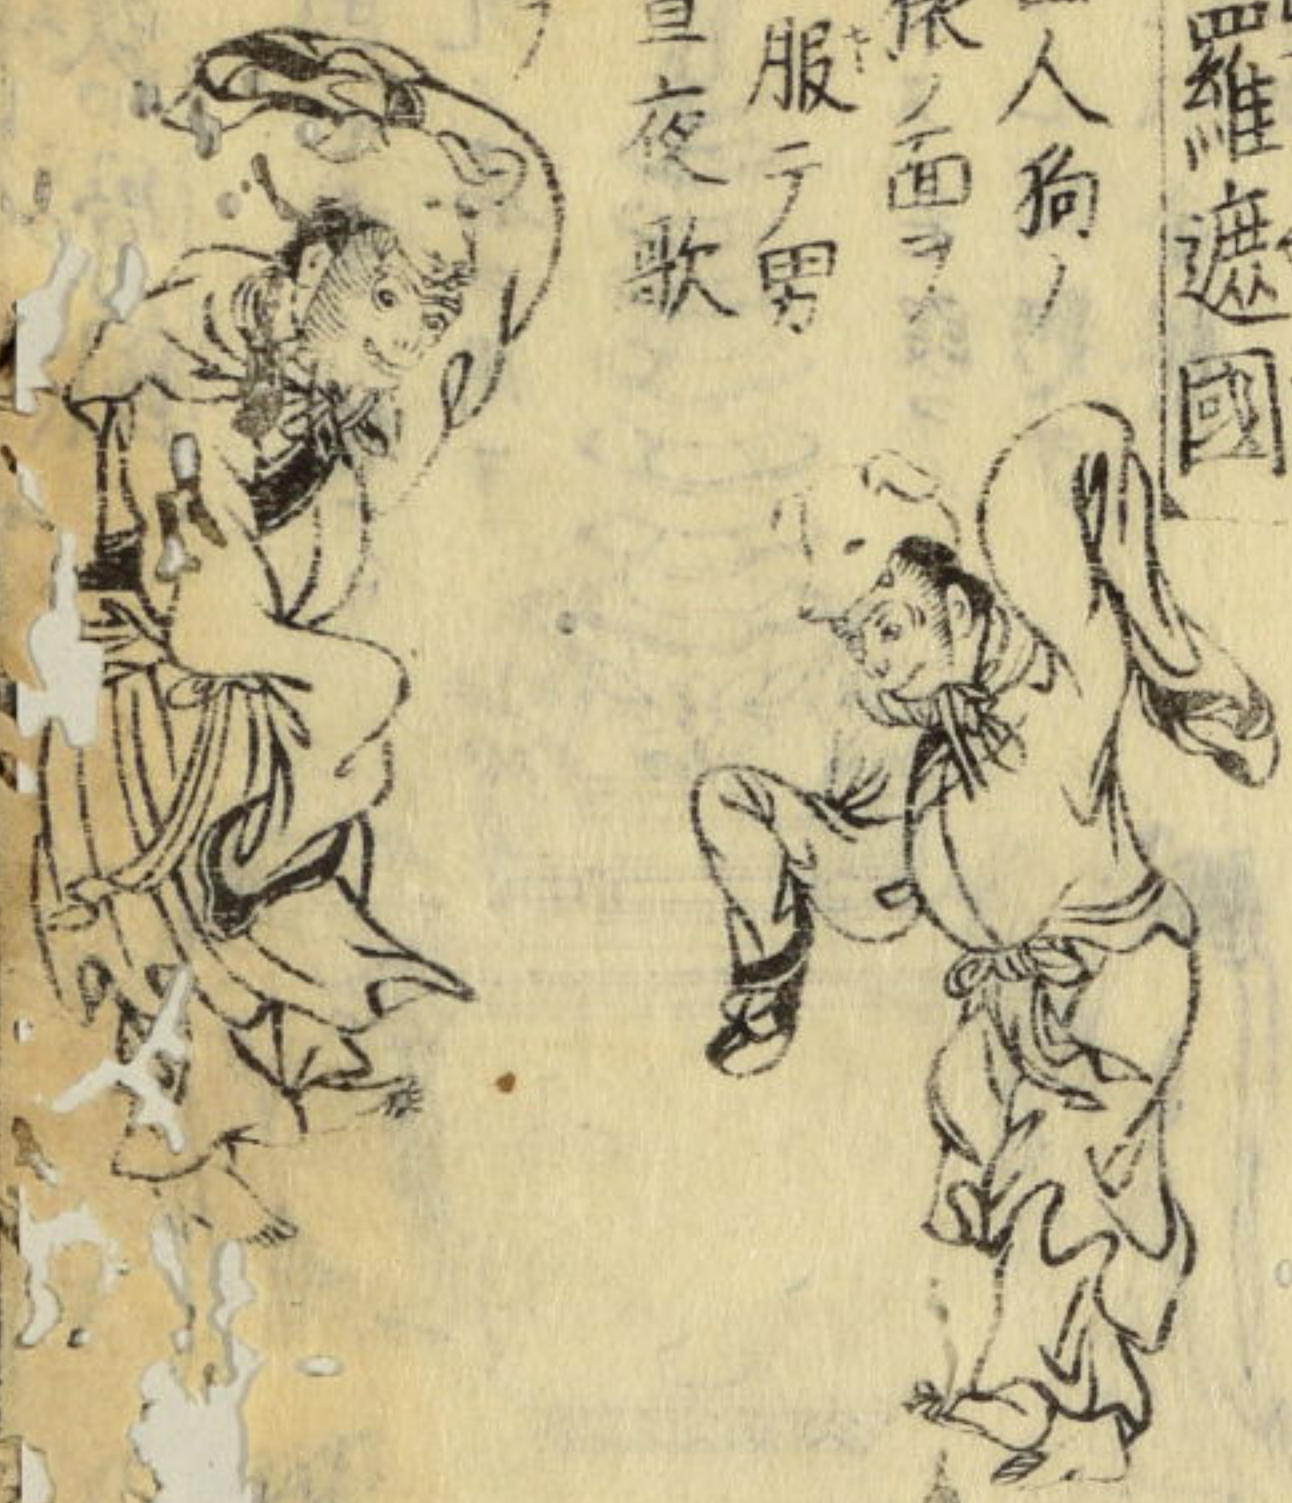 羅遮國
人狗ノ
猿ノ面ヲ
服テ男
晝夜歌